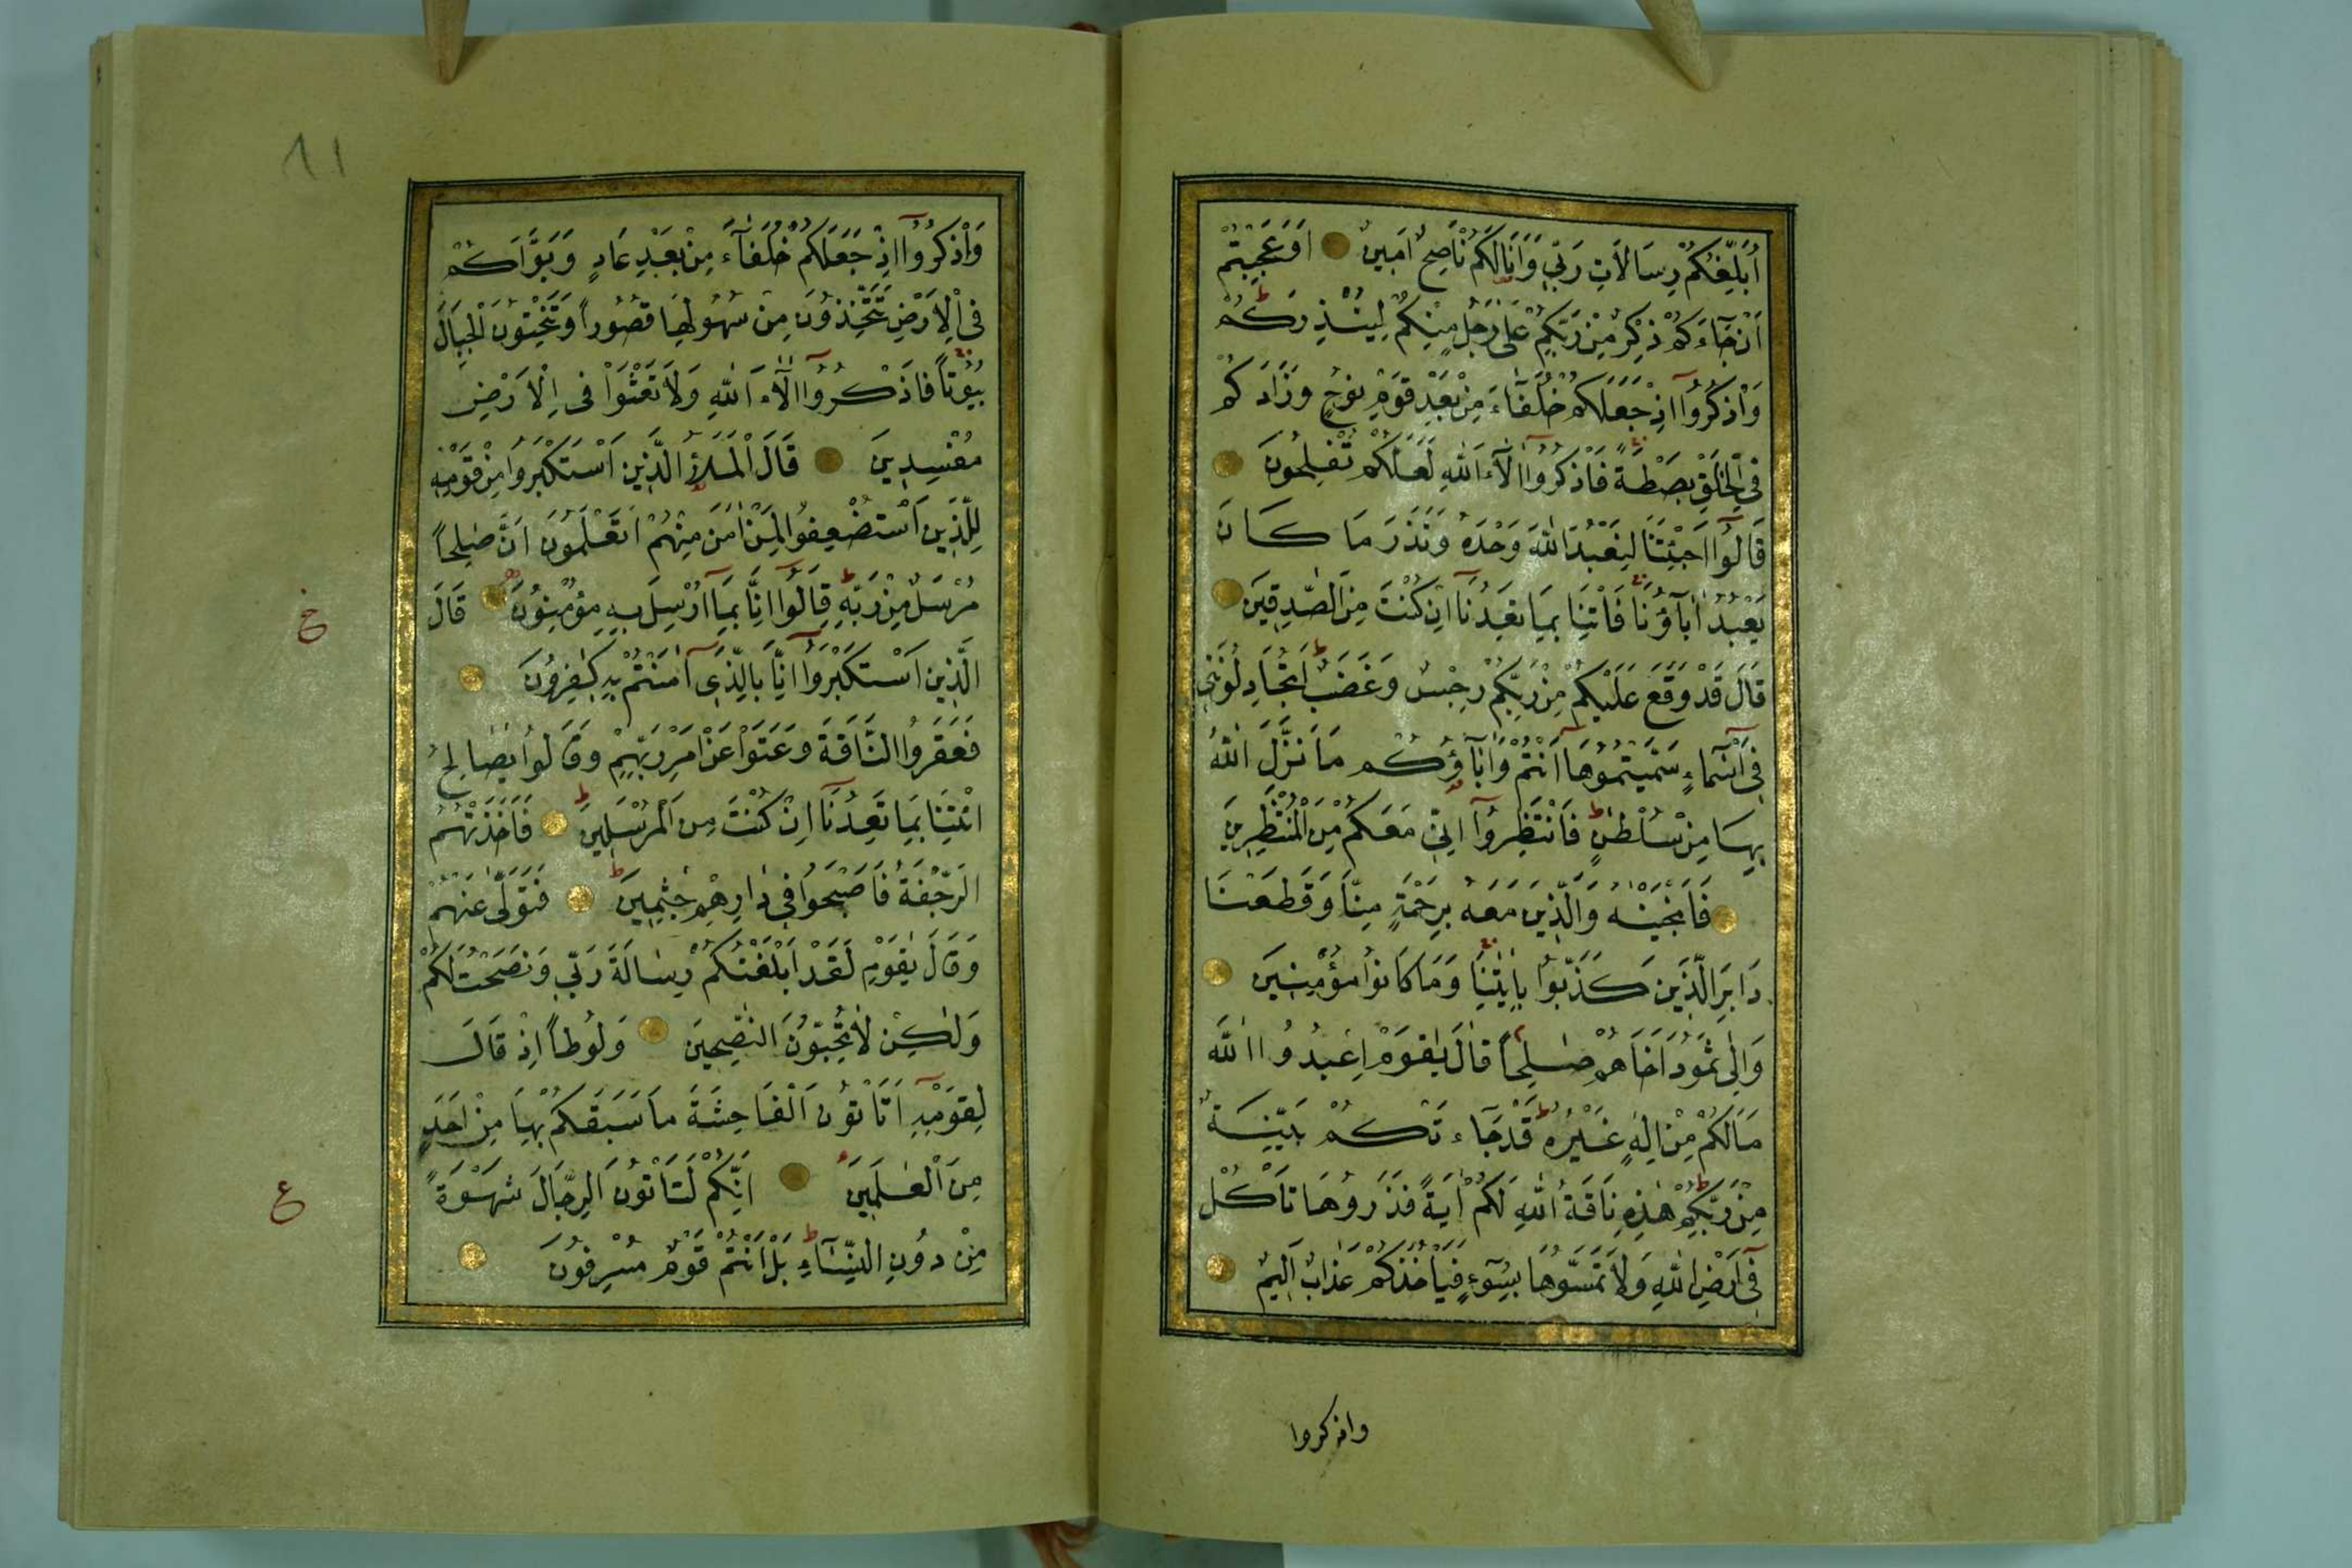 اُبَلِّغُكُمْ رِسَالَاتِ رَبِّي وَاَنَا لَكُمْ نَاصِحٌ اَمِينٌ اَوَعَجِبْتُمْ
اَنْ جَاءَكُمْ ذِكْرٌ مِنْ رَبِّكُمْ عَلٰى رَجُلٍ مِنْكُمْ لِيُنْذِرَكُمْ
وَاذْكُرُوٓا اِذْ جَعَلَكُمْ خُلَفَاءَ مِنْ بَعْدِ قَوْمِ نُوحٍ وَزَادَكُمْ
فِي الْخَلْقِ بَصْطَةً فَاذْكُرُوٓا اٰلَآءَ اللّٰهِ لَعَلَّكُمْ تُفْلِحُونَ
قَالُوٓا اَجِئْتَنَا لِنَعْبُدَ اللّٰهَ وَحْدَهُ وَنَذَرَ مَا كَانَ
يَعْبُدُ اٰبَآؤُنَا فَاْتِنَا بِمَا تَعِدُنَآ اِنْ كُنْتَ مِنَ الصّٰدِقِينَ
قَالَ قَدْ وَقَعَ عَلَيْكُمْ مِنْ رَبِّكُمْ رِجْسٌ وَغَضَبٌ اَتُجَادِلُونَنِي
فِيٓ اَسْمَآءٍ سَمَّيْتُمُوهَآ اَنْتُمْ وَاٰبَآؤُكُمْ مَا نَزَّلَ اللّٰهُ
بِهَا مِنْ سُلْطٰنٍ فَانْتَظِرُوٓا اِنِّي مَعَكُمْ مِنَ الْمُنْتَظِرِينَ
فَاَنْجَيْنٰهُ وَالَّذِينَ مَعَهُ بِرَحْمَةٍ مِنَّا وَقَطَعْنَا
دَابِرَ الَّذِينَ كَذَّبُوا بِاٰيٰتِنَا وَمَا كَانُوا مُؤْمِنِينَ
وَاِلٰى ثَمُودَ اَخَاهُمْ صٰلِحًا قَالَ يٰقَوْمِ اعْبُدُوا اللّٰهَ
مَالَكُمْ مِنْ اِلٰهٍ غَيْرُهُ قَدْ جَآءَتْكُمْ بَيِّنَةٌ
مِنْ رَبِّكُمْ هٰذِهِ نَاقَةُ اللّٰهِ لَكُمْ اٰيَةً فَذَرُوهَا تَأْكُلْ
فِيٓ اَرْضِ اللّٰهِ وَلَا تَمَسُّوهَا بِسُوٓءٍ فَيَأْخُذَكُمْ عَذَابٌ اَلِيمٌ
واذكروا
وَاذْكُرُوٓا اِذْ جَعَلَكُمْ خُلَفَآءَ مِنْ بَعْدِ عَادٍ وَبَوَّاَكُمْ
فِي الْاَرْضِ تَتَّخِذُونَ مِنْ سُهُولِهَا قُصُورًا وَتَنْحِتُونَ الْجِبَالَ
بُيُوتًا فَاذْكُرُوٓا اٰلَآءَ اللّٰهِ وَلَا تَعْثَوْا فِي الْاَرْضِ
مُفْسِدِينَ قَالَ الْمَلَاُ الَّذِينَ اسْتَكْبَرُوا مِنْ قَوْمِهِ
لِلَّذِينَ اسْتُضْعِفُوا لِمَنْ اٰمَنَ مِنْهُمْ اَتَعْلَمُونَ اَنَّ صٰلِحًا
مُرْسَلٌ مِنْ رَبِّهِ قَالُوٓا اِنَّا بِمَآ اُرْسِلَ بِهِ مُؤْمِنُونَ قَالَ
خ
الَّذِينَ اسْتَكْبَرُوٓا اِنَّا بِالَّذِيٓ اٰمَنْتُمْ بِهِ كٰفِرُونَ
فَعَقَرُوا النَّاقَةَ وَعَتَوْا عَنْ اَمْرِ رَبِّهِمْ وَقَالُوا يٰصَالِحُ
ائْتِنَا بِمَا تَعِدُنَآ اِنْ كُنْتَ مِنَ الْمُرْسَلِينَ فَاَخَذَتْهُمُ
الرَّجْفَةُ فَاَصْبَحُوا فِي دَارِهِمْ جٰثِمِينَ فَتَوَلّٰى عَنْهُمْ
وَقَالَ يٰقَوْمِ لَقَدْ اَبْلَغْتُكُمْ رِسَالَةَ رَبِّي وَنَصَحْتُ لَكُمْ
وَلٰكِنْ لَا تُحِبُّونَ النّٰصِحِينَ وَلُوطًا اِذْ قَالَ
لِقَوْمِهِٓ اَتَأْتُونَ الْفَاحِشَةَ مَا سَبَقَكُمْ بِهَا مِنْ اَحَدٍ
مِنَ الْعٰلَمِينَ اِنَّكُمْ لَتَأْتُونَ الرِّجَالَ شَهْوَةً
ع
مِنْ دُونِ النِّسَآءِ بَلْ اَنْتُمْ قَوْمٌ مُسْرِفُونَ